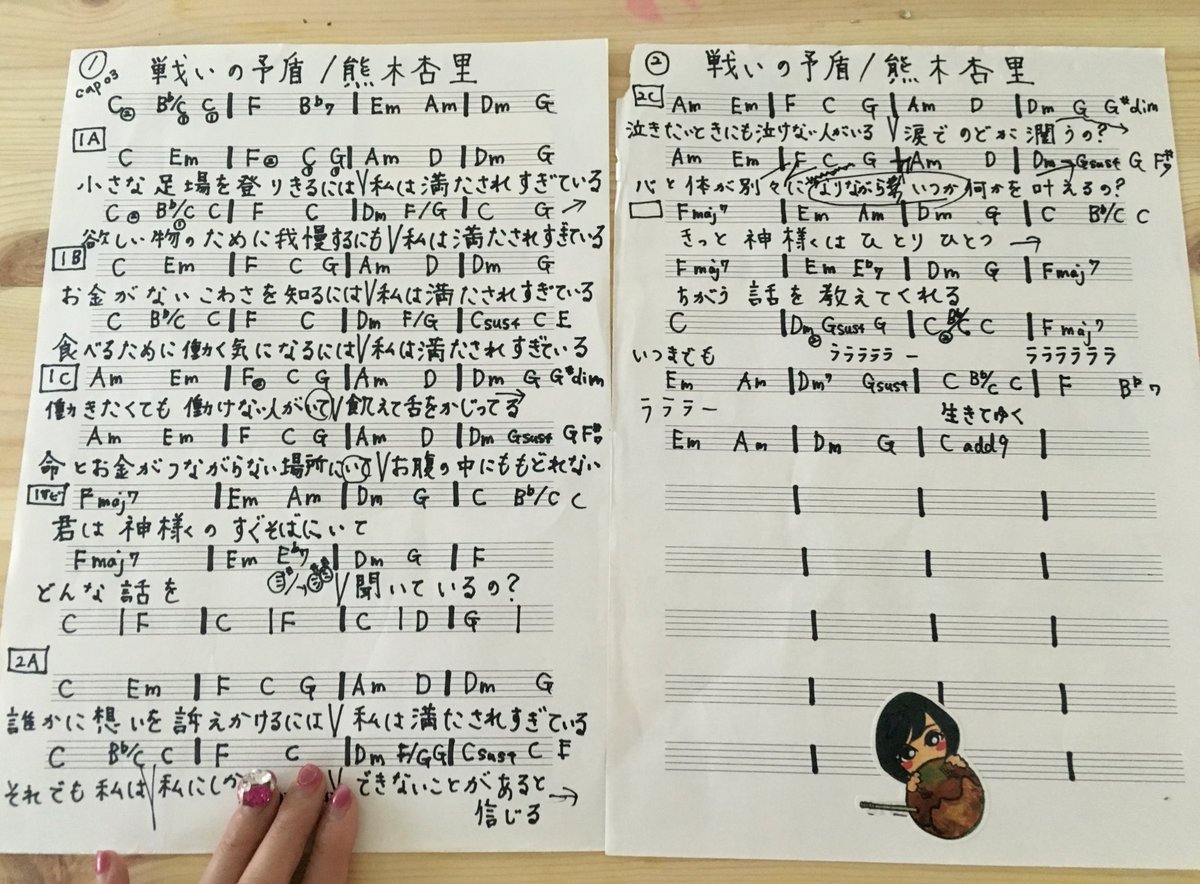 ① 戦いの矛盾/熊木杏里
capo3
C② B♭/C① C① | F B♭7 | Em Am | Dm G
1A
C Em | F② C① G① | Am D | Dm G
小さな足場を登りきるにはV私は満たされすぎている
C② B♭/C① C | F C | Dm F/G | C G →
欲しい物のために我慢するにもV私は満たされすぎている
1B
C Em | F C G | Am D | Dm G
お金がないこわさを知るにはV私は満たされすぎている
C B♭/C C | F C | Dm F/G | Csus4 C E
食べるために働く気になるにはV私は満たされすぎている
1C Am Em | F② C G | Am D | Dm G G#dim
働きたくても働けない人がいてV飢えて舌をかじってる
Am Em | F C G | Am D | Dm Gsus4 G F#
命とお金がつながらない場所にいてVお腹の中にももどれない
1サビ Fmaj7 | Em Am | Dm G | C B♭/C C
君は神様くのすぐそばにいて
Fmaj7 | Em E♭7 | Dm G | F
どんな話を V聞いているの?
C | F | C | F | C | D | G |
2A
C Em | F C G | Am D | Dm G
誰かに想いを訴えかけるにはV私は満たされすぎている
C B♭/C C | F C | Dm F/G G | Csus4 C E
それでも私は 私にしか V できないことがあると →
信じる
② 戦いの矛盾/熊木杏里
2C Am Em | F C G | Am D | Dm G G#dim
泣きたいときにも泣けない人がいるV涙でのどが潤うの?
Am Em | F C G | Am D | Dm Gsus4 G F#
心と体が別々になりながら いつか何かを叶えるの?
Fmaj7 | Em Am | Dm G | C B♭/C C
きっと神様くはひとりひとつ →
Fmaj7 | Em E♭7 | Dm G | Fmaj7
ちがう話を教えてくれる
C | Dm② Gsus4 G | C② B♭/C C | Fmaj7
いつまでも ラララララー ララララララ
Em Am | Dm7 Gsus4 | C B♭/C C | F B♭7
ラララー 生きてゆく
Em Am | Dm G | C add9 |